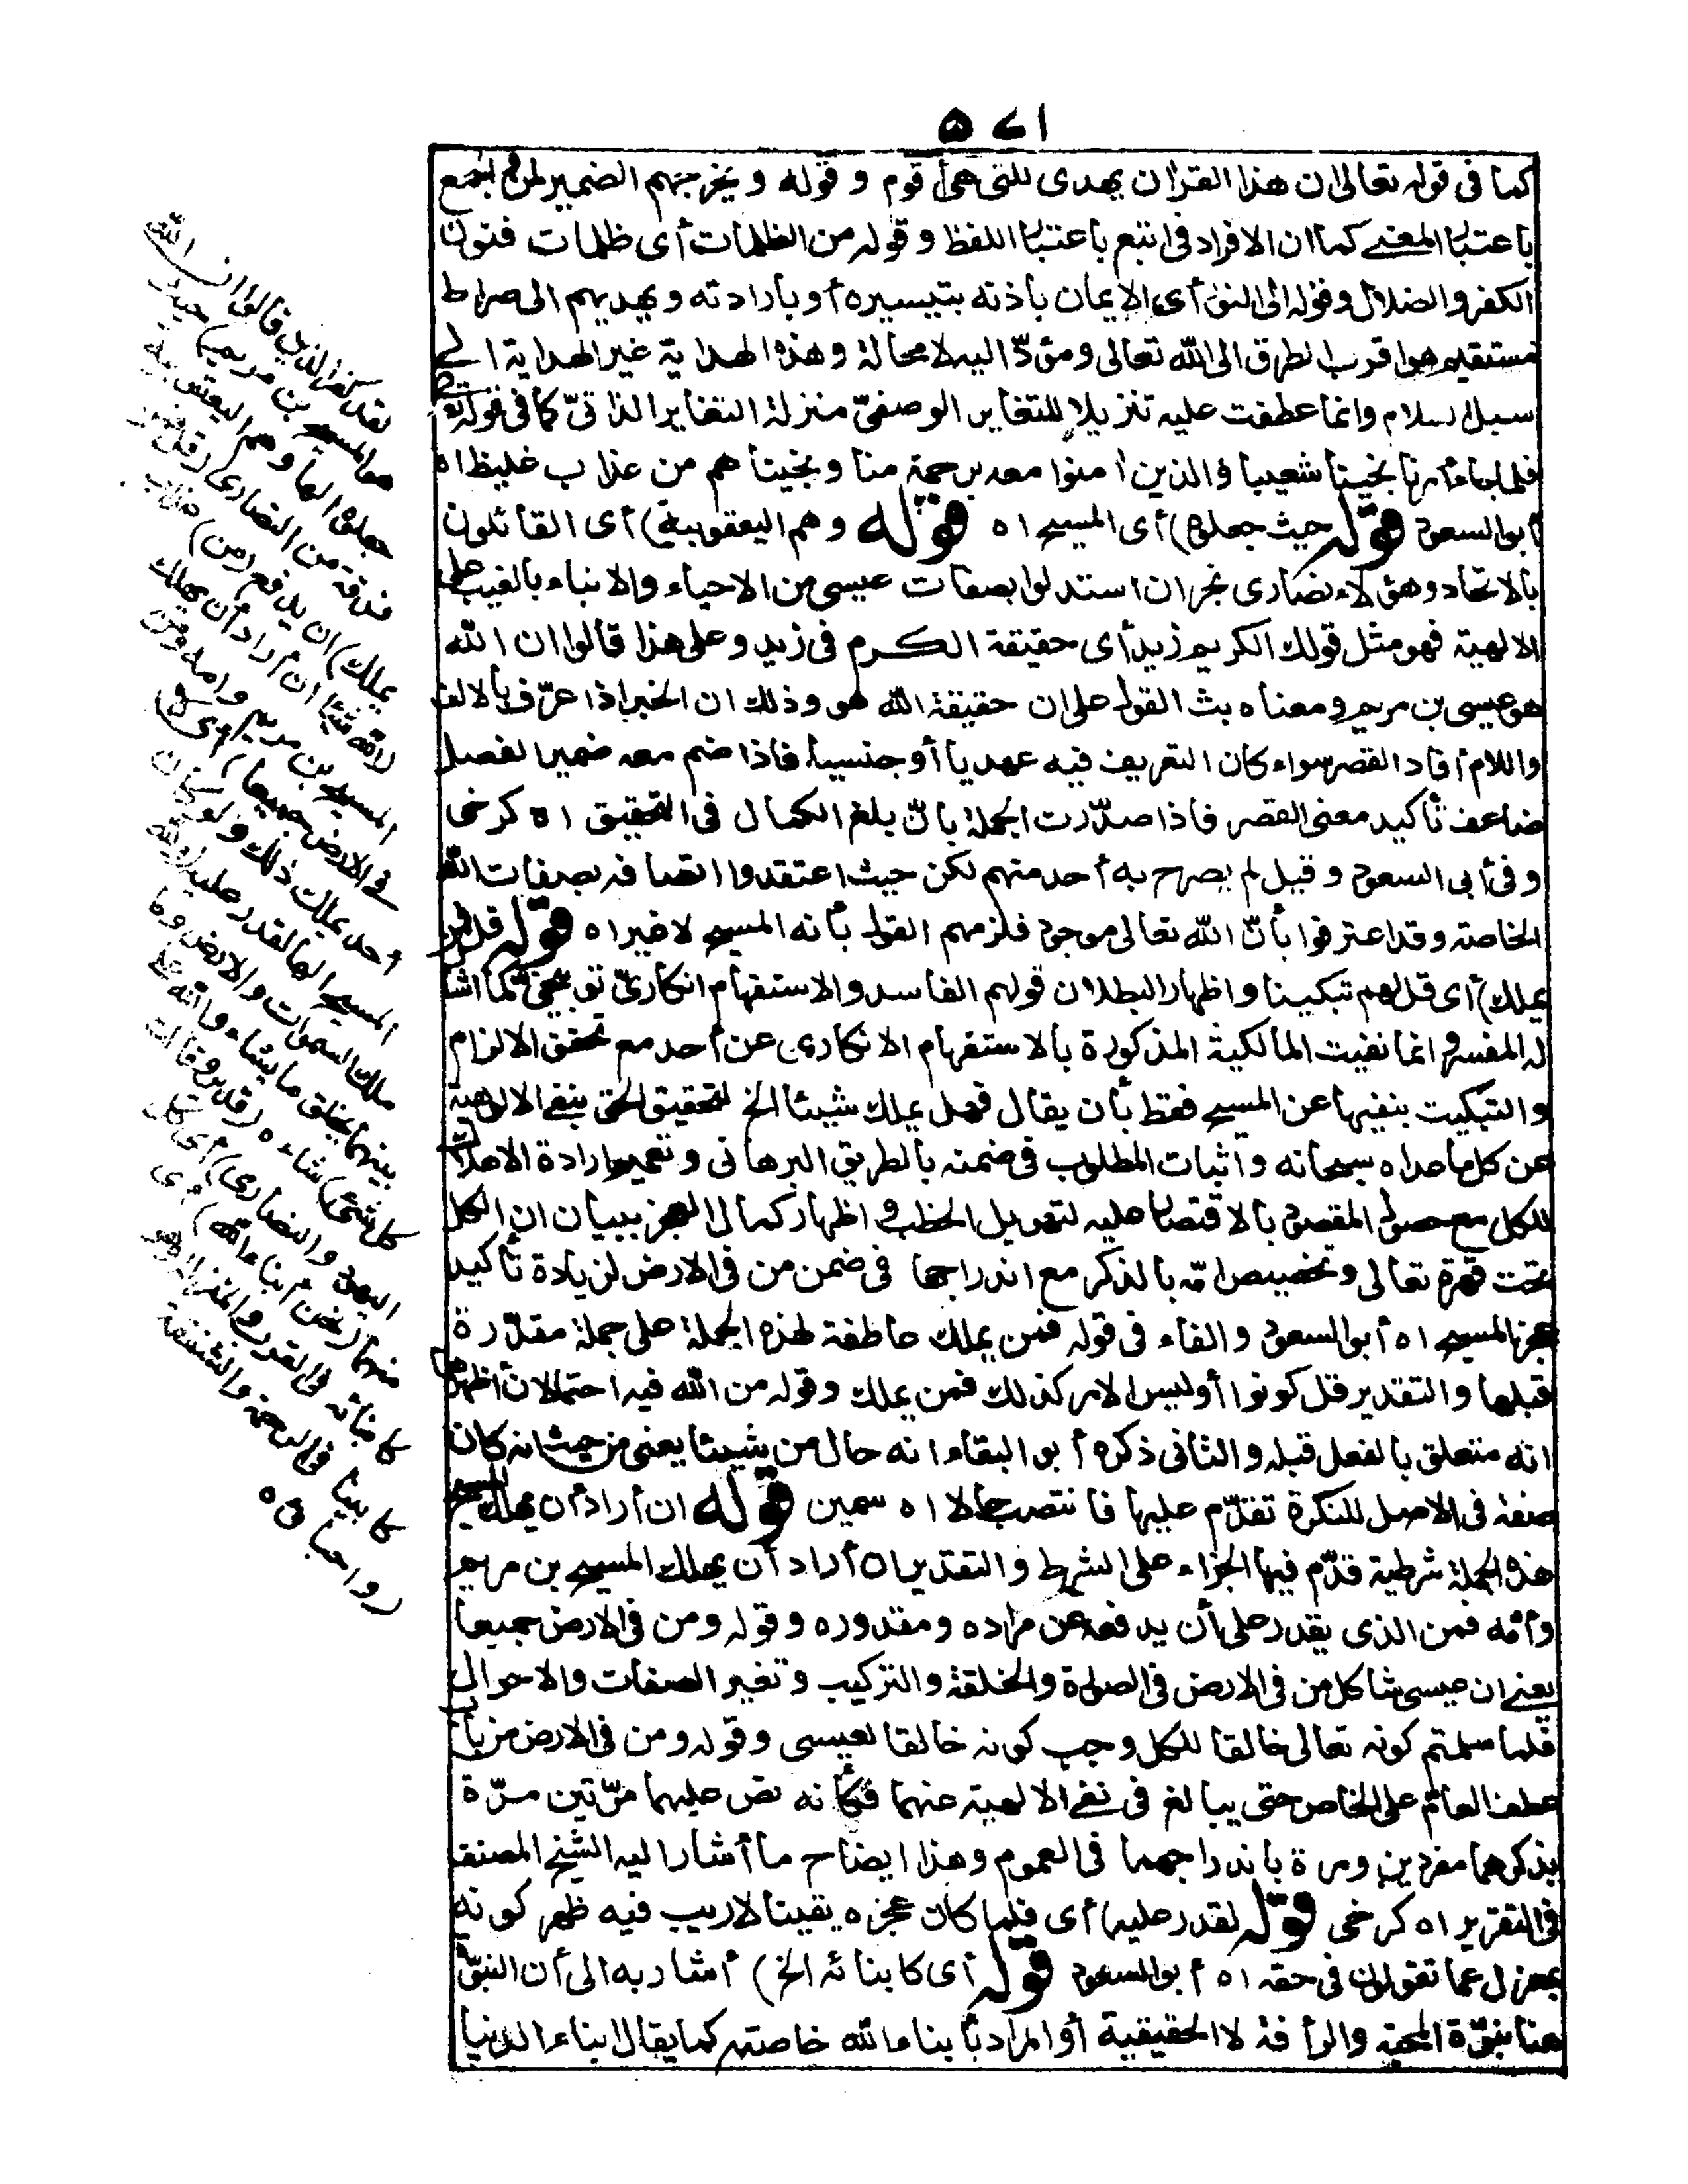 ٥٧١
كما فى قوله تعالى ان هذا القران يهدى للتى هى أقوم وقوله ويخرجهم الضمير لمن والجمع
باعتبار المعنى كما ان الافراد فى اتبع باعتبار اللفظ وقوله من الظلمات أى ظلمات فنون
الكفر والضلال وقوله الى النور أى الايمان باذنه بتيسيره أو بارادته ويهديهم الى صراط
مستقيم هو اقرب الطرق الى الله تعالى ومؤدّ اليه لا محالة وهذه الهداية غير الهداية الى
سبل السلام وانما عطفت عليه تنزيلا للتغاير الوصفىّ منزلة التغاير الذاتىّ كما فى قوله تعالى
فلما جاء أمرنا نجينا شعيبا والذين امنوا معه برحمة منا ونجيناهم من عذاب غليظ اه
أبو السعود قوله حيث جعلوه) أى المسيح اه قوله وهم اليعقوبية) أى القائلون
بالاتحاد وهؤلاء نصارى نجران استدلوا بصفات عيسى من الاحياء والانباء بالغيب على
الالهية فهو مثل قولك الكريم زيد أى حقيقة الكرم فى زيد وعلى هذا قالوا ان الله
هو عيسى بن مريم ومعناه بث القول على ان حقيقة الله هو وذلك ان الخبر اذا عرّف بالالف
واللام أفاد القصر سواء كان التعريف فيه عهديا أو جنسيا فاذا ضم معه ضمير الفصل
ضاعف تأكيد معنى القصر فاذا صدّرت الجملة بانّ بلغ الكمال فى التحقيق اه كرخى
وفى أبى السعود وقيل لم يصرح به أحد منهم لكن حيث اعتقدوا اتصافه بصفات الله
الخاصة وقد اعترفوا بأنّ الله تعالى موجود فلزمهم القول بأنه المسيح لا غير اه قوله قل فمن
يملك) أى قل لهم تبكيتا واظهارا لبطلان قولهم الفاسد والاستفهام انكارىّ توبيخىّ كما أشار
له المفسر وانما نفيت المالكية المذكورة بالاستفهام الانكارى عن أحد مع تحقق الالزام
والتبكيت بنفيها عن المسيح فقط بأن يقال فهل يملك شيئا الخ لتحقيق الحق بنفى الالوهية
عن كل ما عداه سبحانه واثبات المطلوب فى ضمنه بالطريق البرهانى وتعميم ارادة الاهلاك
للكل مع حصول المقصود بالاقتصار عليه لتهويل الخطب واظهار كمال العجز ببيان ان الكل
تحت قهره تعالى وتخصيص امّه بالذكر مع اندراجها فى ضمن من فى الارض لزيادة تأكيد
عجز المسيح اه أبو السعود والفاء فى قوله فمن يملك عاطفة لهذه الجملة على جملة مقدّرة
قبلها والتقدير قل كونوا أوليس الامر كذلك فمن يملك وقوله من الله فيه احتمالان أظهرهما
انه متعلق بالفعل قبله والثانى ذكره أبو البقاء انه حال من شيئا يعنى من حيث انه كان
صفة فى الاصل للنكرة تقدّم عليها فانتصب حالا اه سمين قوله ان أراد أن يهلك المسيح
هذه الجملة شرطية قدّم فيها الجزاء على الشرط والتقدير ان أراد أن يهلك المسيح بن مريم
وأمه فمن الذى يقدر على أن يدفعه عن مراده ومقدوره وقوله ومن فى الارض جميعا
يعنى ان عيسى شاكل من فى الارض فى الصورة والخلقة والتركيب وتغير الصفات والاحوال
فلما سلمتم كونه تعالى خالقا للكل وجب كونه خالقا لعيسى وقوله ومن فى الارض من باب
عطف العام على الخاص حتى يبالغ فى نفى الالهية عنهما فكأنه نص عليهما مرّتين مرّة
بذكرهما مفردين ومرة باندراجهما فى العموم وهذا ايضاح ما أشار اليه الشيخ المصنف
فى التقرير اه كرخى قوله لقدر عليه) أى فلما كان عجزه يقينا لا ريب فيه ظهر كونه
بمعزل عما تقولون فى حقه اه أبو السعود قوله أى كابنائه الخ) أشار به الى أن البنوّة
هنا بنوّة المحبة والرأفة لا الحقيقية أو المراد بأبناء الله خاصته كما يقال ابناء الدنيا
لقد كفر الذين قالوا ان الله
هو المسيح بن مريم) حيث
جعلوه الها وهم اليعقوبية
فرقة من النصارى (قل فمن
يملك) ان يدفع (من) عذاب
(الله شيئا ان أراد أن يهلك
المسيح بن مريم وامه ومن
فى الارض جميعا) أى
أحد يملك ذلك ولو كان
المسيح الها لقدر عليه (ولله
ملك السموات والارض وما
بينهما يخلق ما يشاء والله على
كل شئ) شاءه (قدير وقالت
اليهود والنصارى) أى كل
منهما (نحن أبناء الله) أى
كابنائه فى القرب والمنزلة وهو
كابينا فى الرحمة والشفقة
(واحباؤه